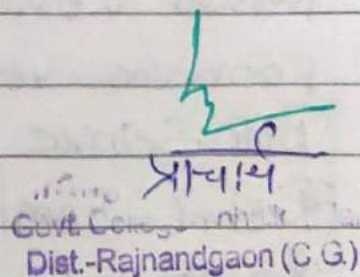 प्राचार्य
Govt. College
Dist.-Rajnandgaon (C.G.)